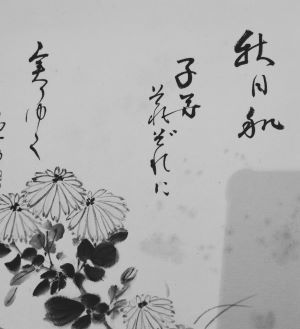 秋日和
子等
それぞれに
実りゆく